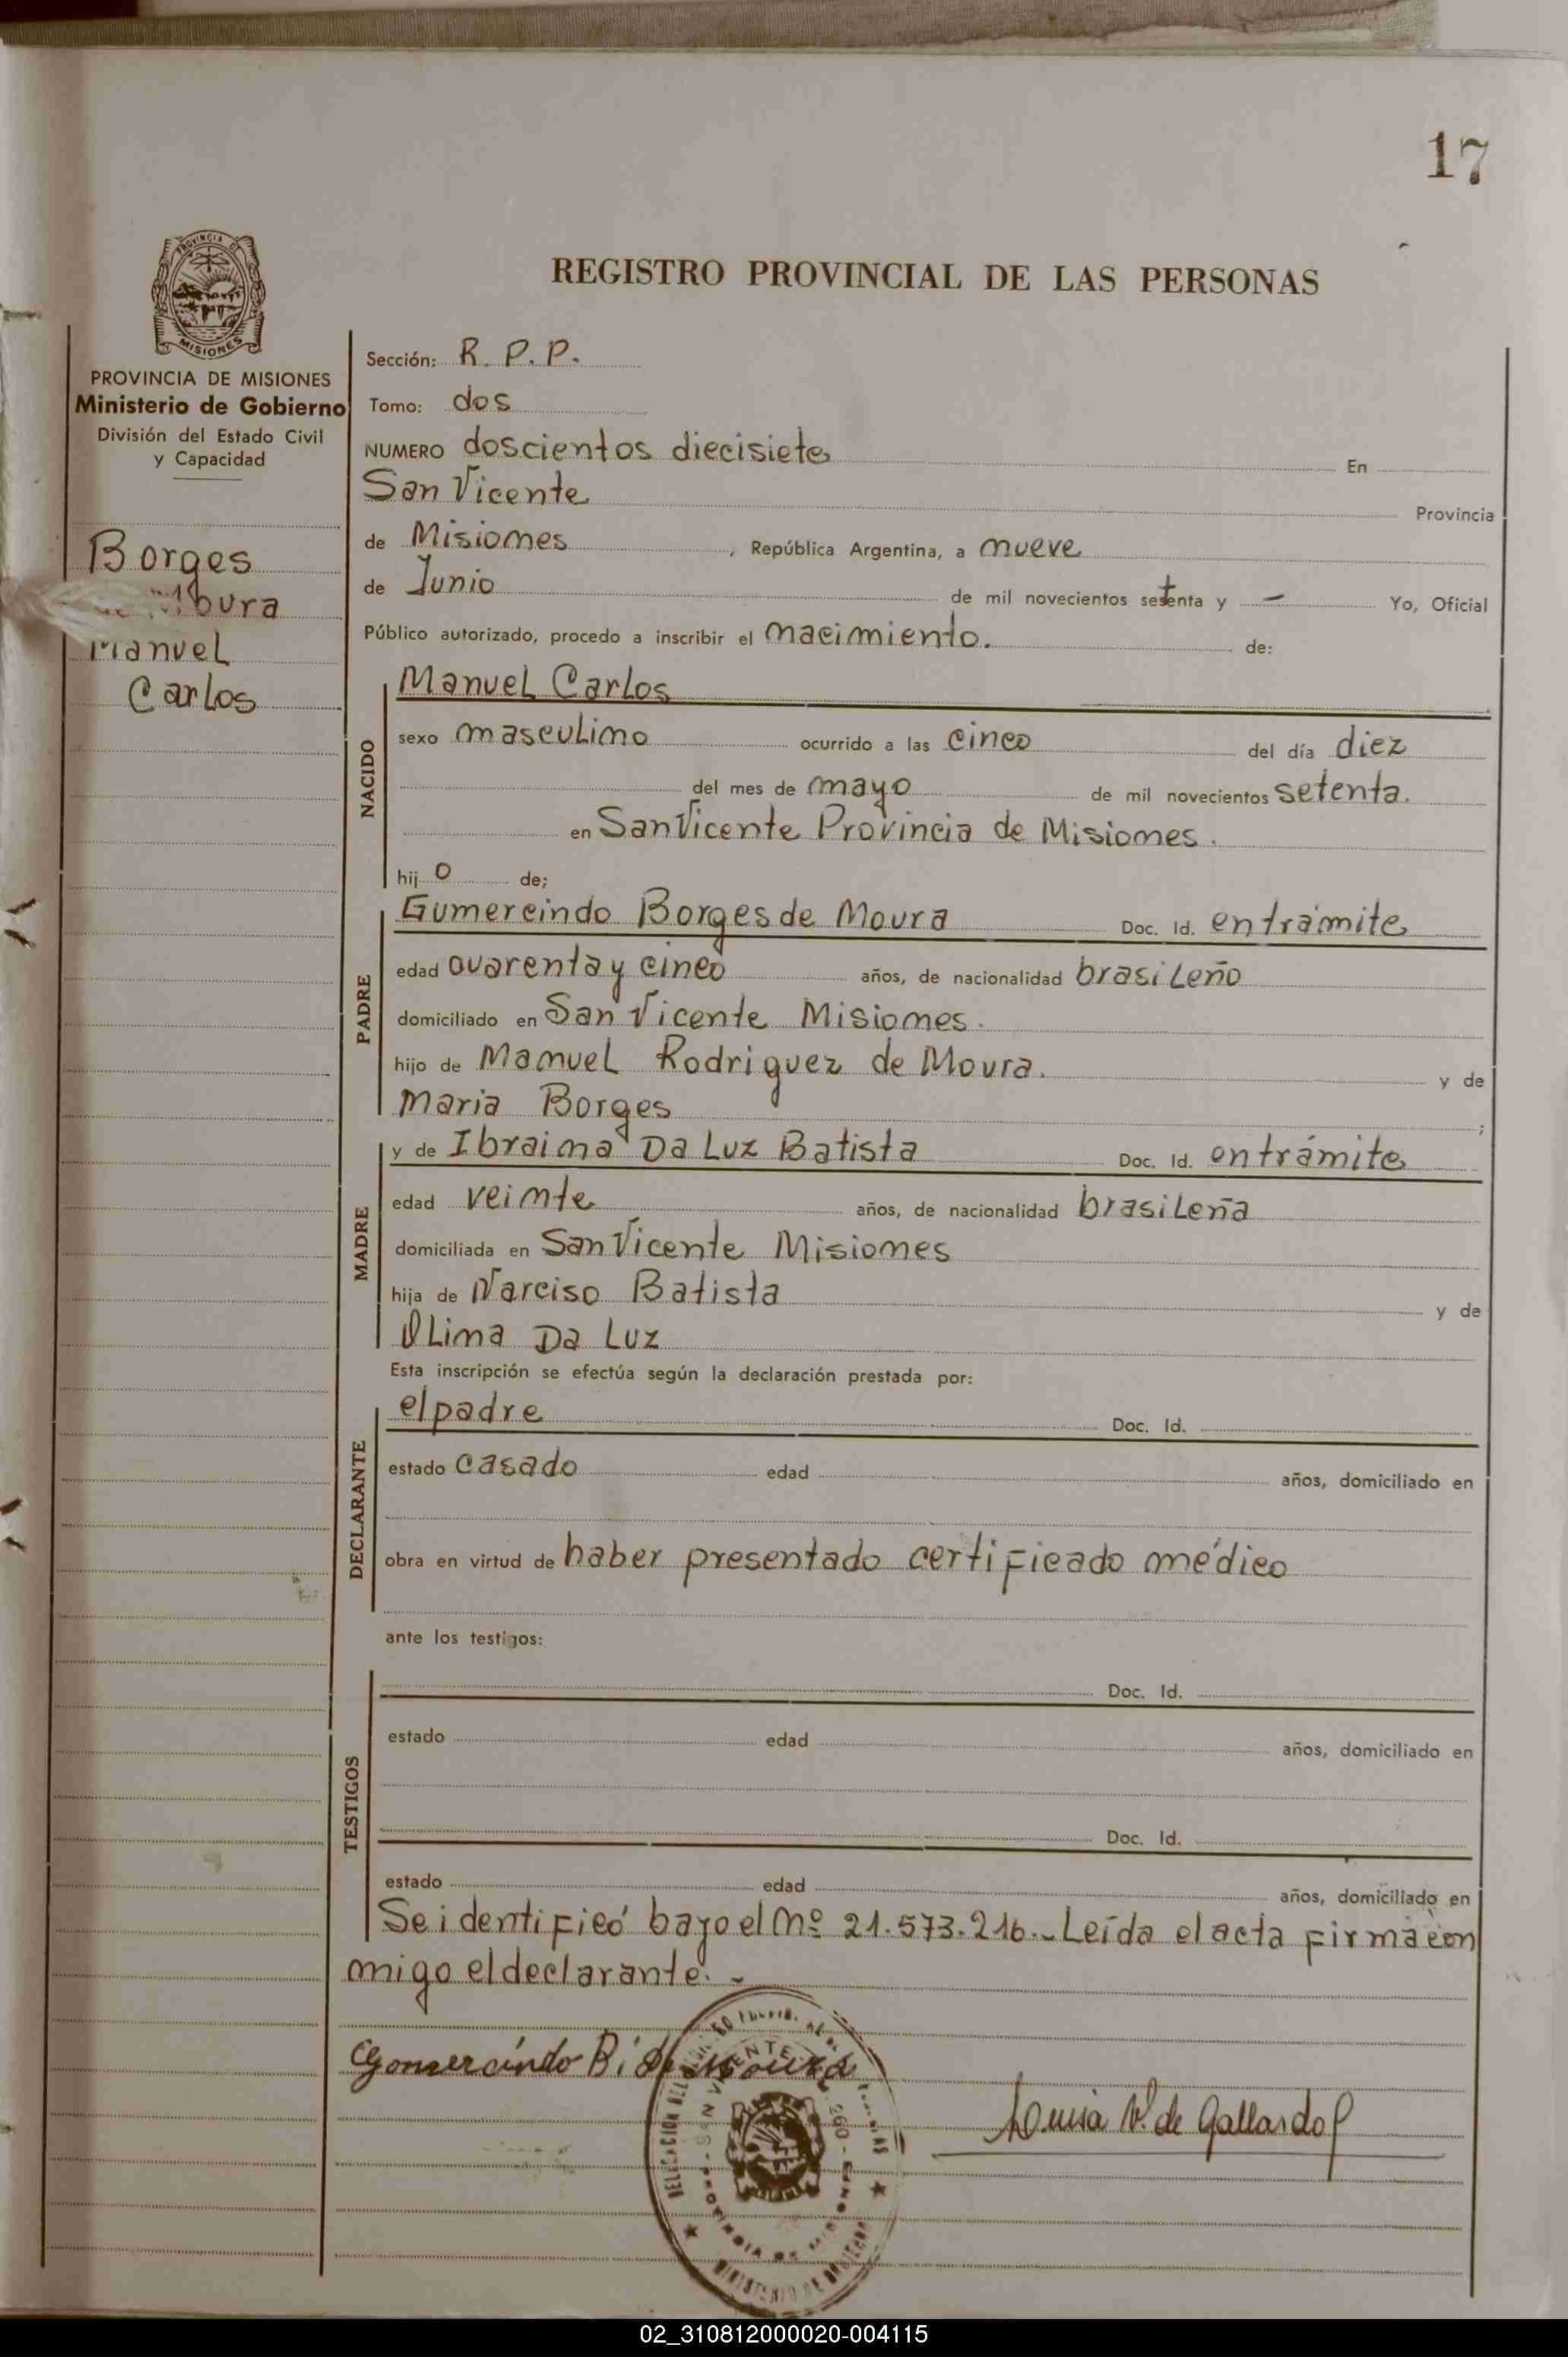 17
REGISTRO PROVINCIAL DE LAS PERSONAS
PROVINCIA DE
MISIONES
PROVINCIA DE MISIONES
Ministerio de Gobierno
División del Estado Civil
y Capacidad
Borges
Moura
Manuel
Carlos
Sección: R. P. P.
Tomo: dos
NUMERO doscientos diecisiete En
San Vicente Provincia
de Misiones, República Argentina, a nueve
de Junio de mil novecientos setenta y - Yo, Oficial
Público autorizado, procedo a inscribir el nacimiento. de:
NACIDO
Manuel Carlos
sexo masculino ocurrido a las cinco del día diez
del mes de mayo de mil novecientos setenta.
en San Vicente Provincia de Misiones.
hijo de;
PADRE
Gumercindo Borges de Moura Doc. Id. en trámite
edad cuarenta y cinco años, de nacionalidad brasileño
domiciliado en San Vicente Misiones.
hijo de Manuel Rodriguez de Moura. y de
Maria Borges ;
MADRE
y de Ibraima Da Luz Batista Doc. Id. en trámite
edad veinte años, de nacionalidad brasileña
domiciliada en San Vicente Misiones
hija de Narciso Batista y de
Olina Da Luz
Esta inscripción se efectúa según la declaración prestada por:
DECLARANTE
el padre Doc. Id.
estado casado edad años, domiciliado en
obra en virtud de haber presentado certificado médico
ante los testigos:
TESTIGOS
Doc. Id.
estado edad años, domiciliado en
Doc. Id.
estado edad años, domiciliado en
Se identificó bajo el Nº 21.573.216.- Leída el acta firma con
migo el declarante. -
Gomercindo B. de Moura
Louisa V. de Gallardo
SAN VICENTE
PROVINCIA DE MISIONES
02_310812000020-004115